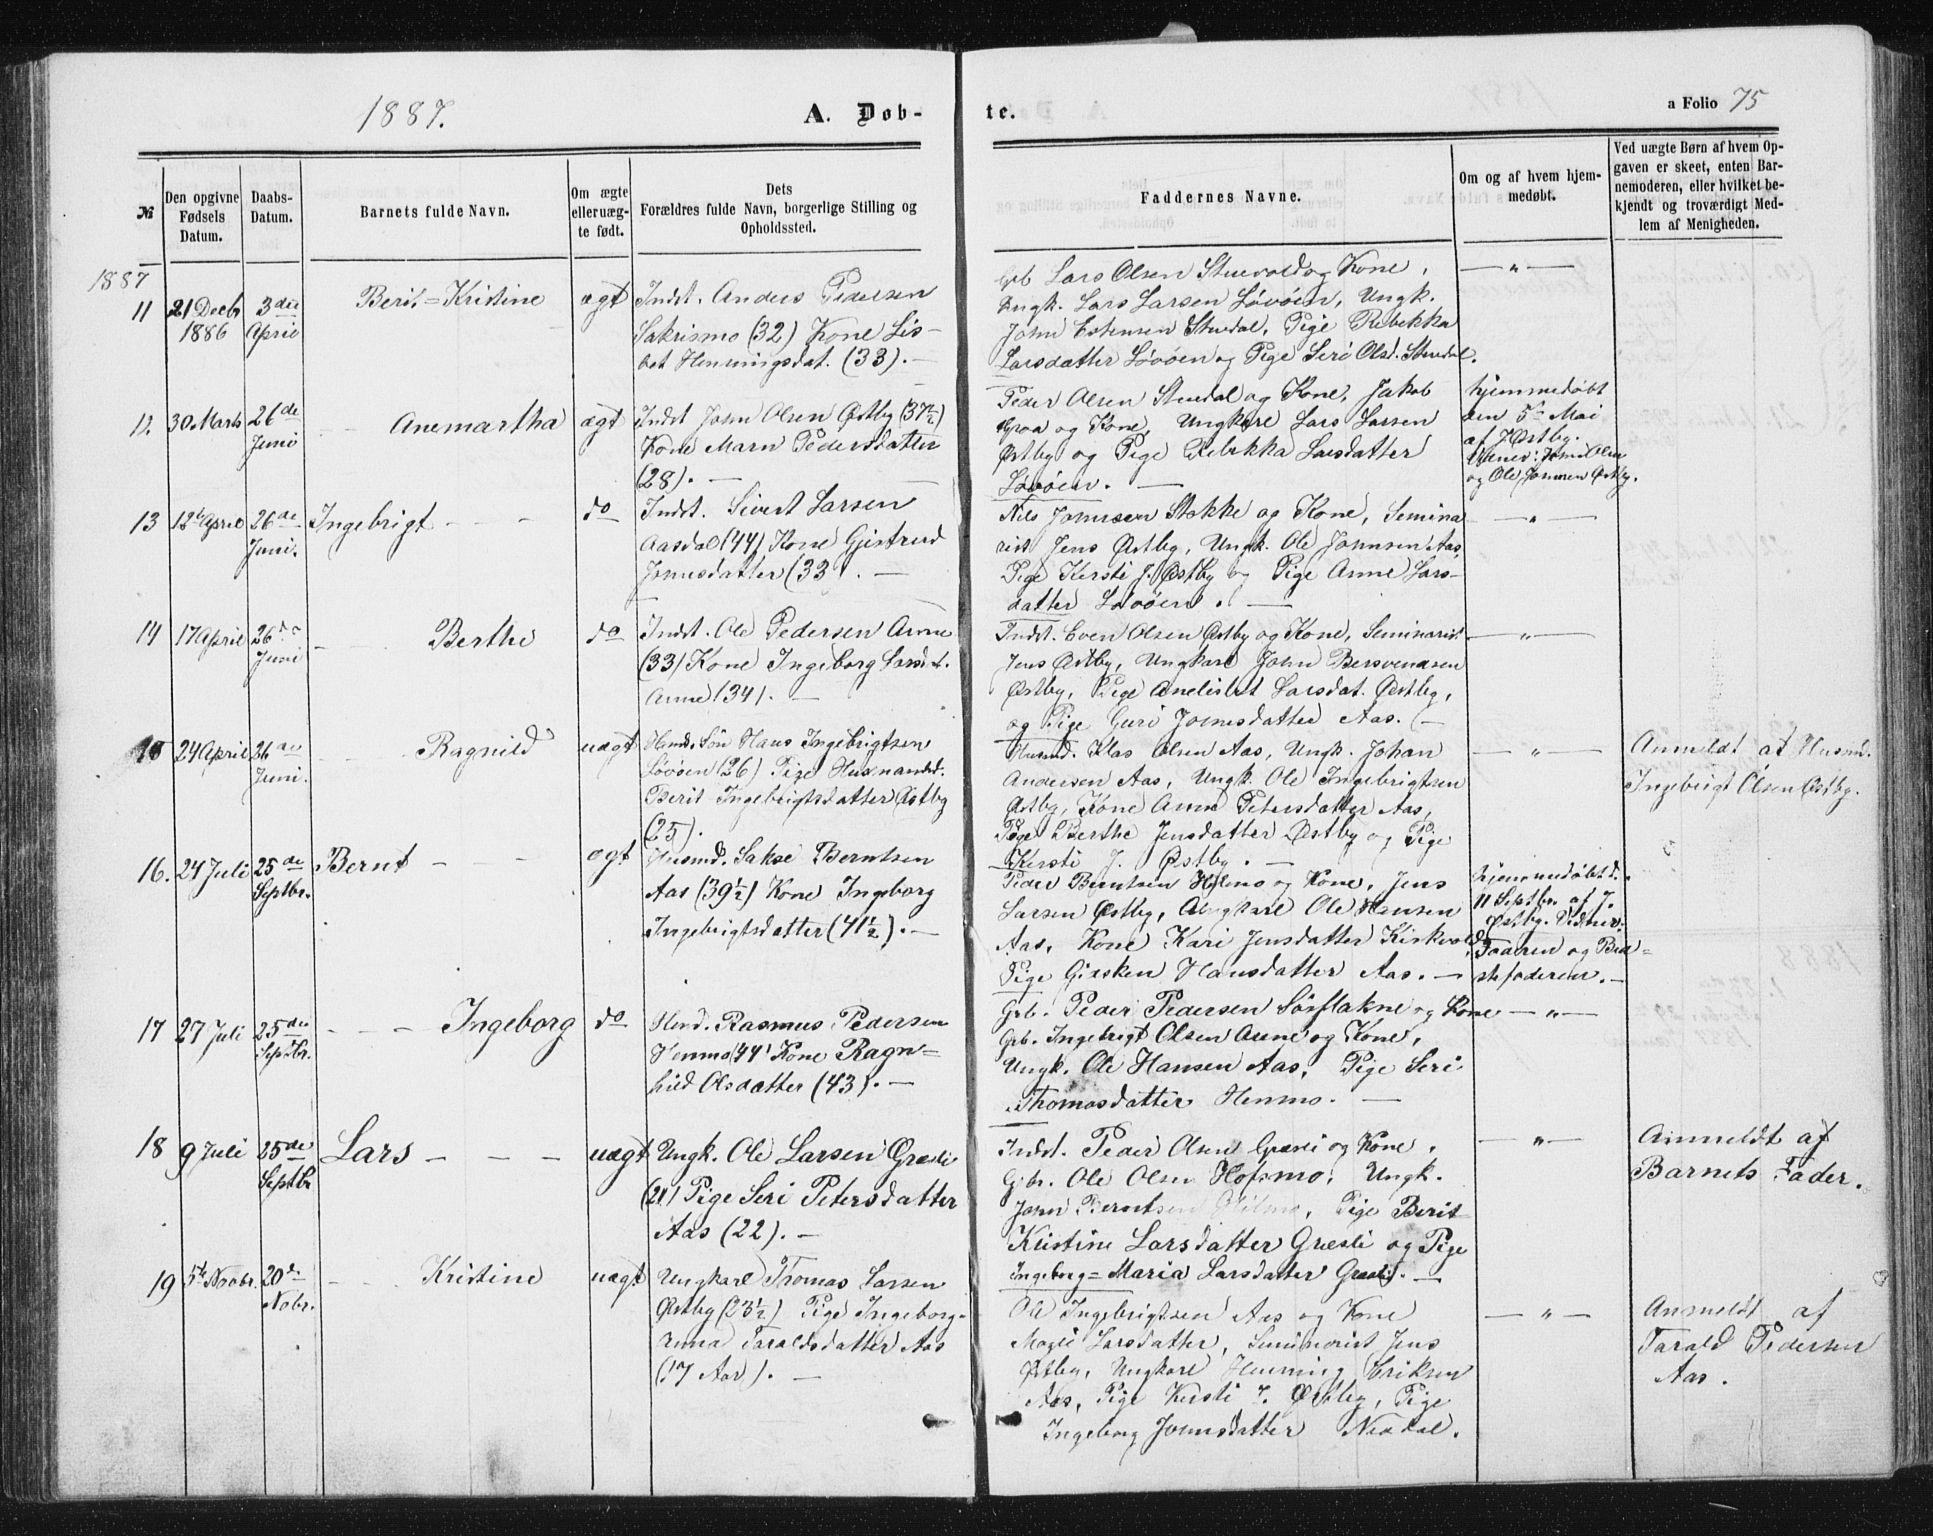 1887. A. Døb- te. a Folio 75
№
Den opgivne Fødsels Datum.
Daabs-Datum.
Barnets fulde Navn.
Om ægte eller uæg-te født.
Dets Forældres fulde Navn, borgerlige Stilling og Opholdssted.
Faddernes Navne.
Om og af hvem hjem-medøbt.
Ved uægte Børn af hvem Op-gaven er skeet, enten Bar-nemoderen, eller hvilket be-kjendt og troværdigt Med-lem af Menigheden.
1887
11 21 Decb 1886 3die April Berit=Kristine ægt
Indst. Anders Pedersen
Sakrismo (32) Kone Lis-
bet Henningsdat. (33). —
Grb Lars Olsen Stuevold og Kone,
Ungk. Lars Larsen Løvøen, Ungk.
John Estensen Stuedal, Pige Rebekka
Larsdatter Løvøen og Pige Seri Olsd. Stuedal.
— " —
12. 30 Marts 26de Juni Anemartha ægt
Indst John Olsen Østby (37½)
Kone Marn Pedersdatter
(28). —
Peder Olsen Stuedal og Kone, Jakob
Groa og Kone, Ungkare Lars Larsen
Østby og Pige Rebekka Larsdatter
Løvøen. —
hjemmedøbt
den 5te Mai
af J Østby.
Vidner: John Olsen
og Ole Johnsen Østby.
13 12te April 26de Juni. Ingebrigt — — — do
Indst. Sivert Larsen
Aasdal (44) Kone Gjertrud
Jonusdatter (33). —
Nils Johnsen Stokke og Kone, Semina-
rist Jens Østby, Ungk. Ole Johnsen Aas,
Pige Kersti J. Østby og Pige Anne Lars-
datter Løvøen. —
— " —
14 17 April 26de Juni — — Berthe do
Indst. Ole Pedersen Aune
(33) Kone Ingeborg Larsdat.
Aune (34). —
Indst. Even Olsen Østby og Kone, Seminarist
Jens Østby, Ungkare John Bersvendsen
Østby, Pige Anelisbet Larsdat. Østby,
og Pige Guri Jonusdatter Aas. —
— " —
15 24 April 26de Juni. — — Ragnild uægt
Husmd. Søn Hans Ingebrigtsen
Løvøen (26) Pige Husmandsd.
Berit Ingebrigtsdatter Østby
(25).
Husmd. Klas Olsen Aas, Ungk. Johan
Andersen Aas, Ungk. Ole Ingebrigtsen
Østby, Kone Anne Petersdatter Aas,
Pige Berthe Jensdatter Østby og Pige
Kersti J. Østby. —
— " —
Anmeldt af Husmd.
Ingebrigt Olsen Østby.
16. 24 Juli 25de Septbr. Bernt — — — ægt
Husmd. Sakse Berntsen
Aas (39½) Kone Ingeborg
Ingebrigtsdatter (41½). —
Peder Berntsen Hilmo og Kone, Jens
Larsen Østby, Ungkare Ole Hansen
Aas, Kone Kari Jensdatter Kirkvold,
Pige Gjesken Hansdatter Aas. —
hjemmedøbt d.
11 Septbr. af J.
Østby. Vidner:
Faderen og Bed-
stefaderen. —
17 27 Juli 25de Septbr. — — — Ingeborg do
Husmd. Rasmus Pedersen
Henmo (44) Kone Ragn=
hild Olsdatter (43). —
Grb. Peder Pedersen Sørflakne og Kone
Grb. Ingebrigt Olsen Aune og Kone,
Ungk. Ole Hansen Aas, Pige Seri
Thomasdatter Henmo. —
— " —
18 9 Juli 25de Septbr Lars — — — uægt
Ungk. Ole Larsen Græsli
(21) Pige Seri Petersdatter
Aas (22). —
Indst. Peder Olsen Græsli og Kone,
Gbr. Ole Olsen Hofsmo, Ungk.
John Berntsen Hilmo, Pige Berit
Kristine Larsdatter Græsli og Pige
Ingeborg=Maria Larsdatter Græsli. —
— " —
Anmeldt af
Barnets Fader.
19 5te Novbr. 20de Nobr. — — Kristine uægt
Ungkarl Thomas Larsen
Østby (23½) Pige Ingeborg-
Anna Faraldsdatter Aas
(17 Aar). —
Ole Ingebrigtsen Aas og Kone
Magli Larsdatter, Seminarist Jens
Østby, Ungkare Henning Eriksen
Aas, Pige Kersti J. Østby, Pige
Ingeborg Jonusdatter Nedal.
— " —
Anmeldt af
Farald Pedersen
Aas.